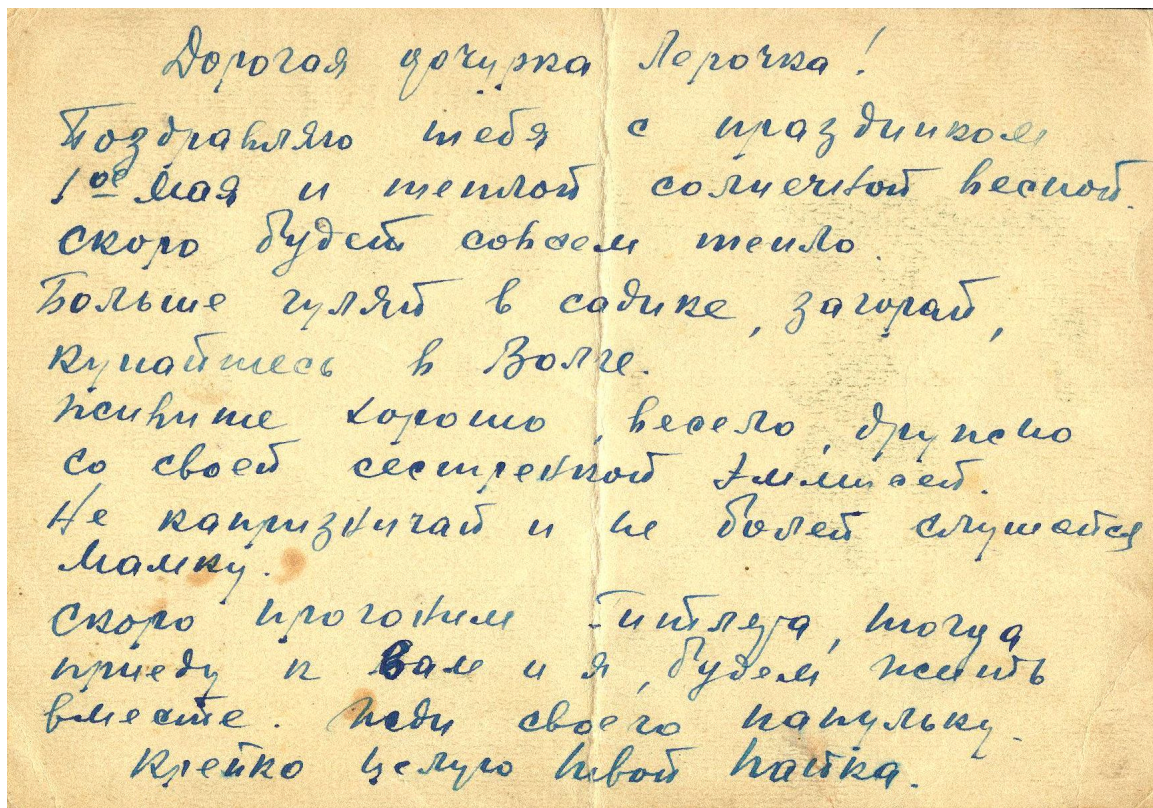 Дорогая дочурка Лерочка!
Поздравляю тебя с праздником
1ое Мая и теплой солнечной весной.
Скоро будет совсем тепло.
Больше гуляй в садике, загорай,
купайтесь в Волге.
Живите хорошо, весело, дружно
со своей сестренкой Эммисей.
Не капризничай и не болей слушайся
Мамку.
Скоро прогоним Гитлера, тогда
приеду к Вам и я, будем жить
вместе. Жди своего папульку.
Крепко целую твой папка.